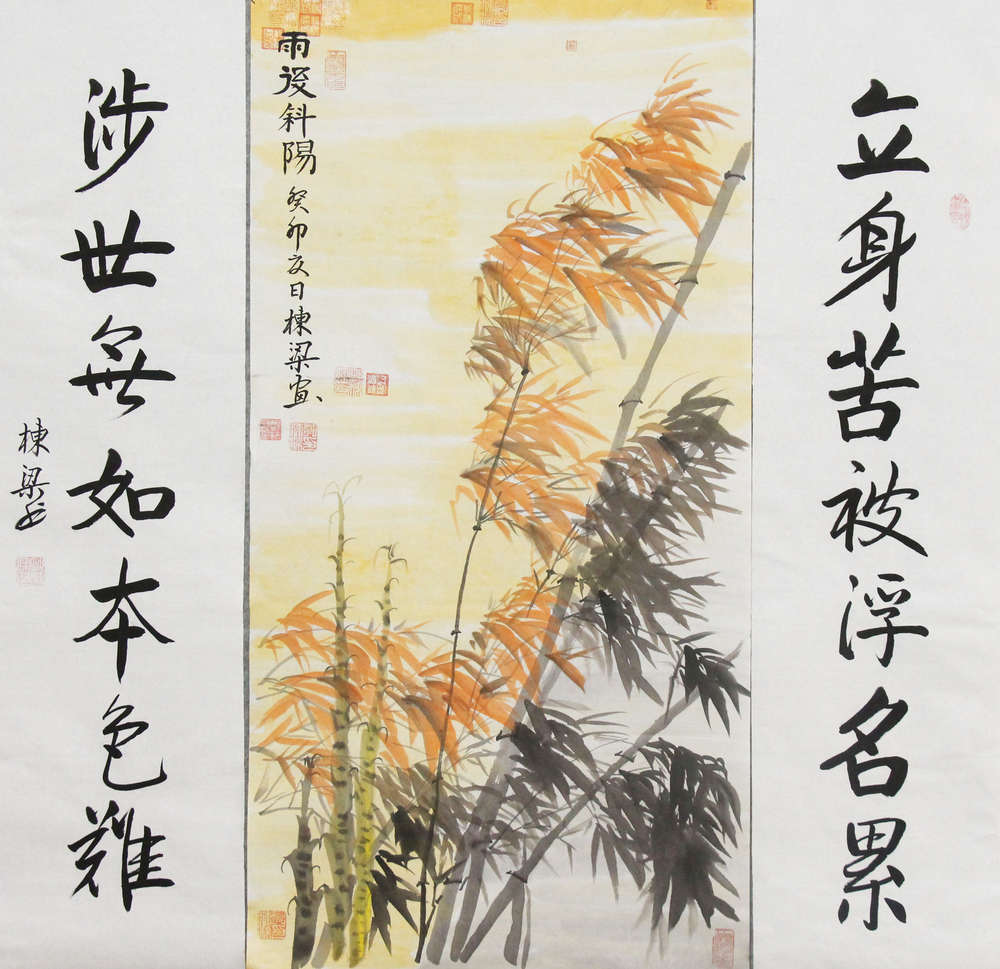 立身苦被浮名累
雨後斜陽 癸卯夏日棟梁畫
涉世無如本色難
棟梁书